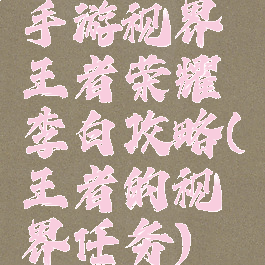 手游视界
王者荣耀
李白攻略(
王者的视
界任务)